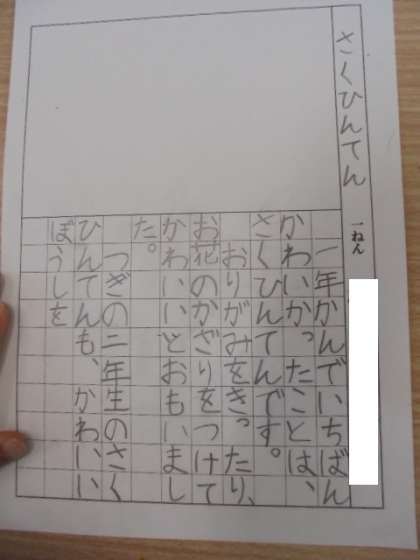 さくひんてん
一ねん
一年かんでいちばん
かわいかったことは、
さくひんてんです。
おりがみをきったり、
お花のかざりをつけて
かわいいとおもいまし
た。
つぎの二年生のさく
ひんてんも、かわいい
ぼうしを